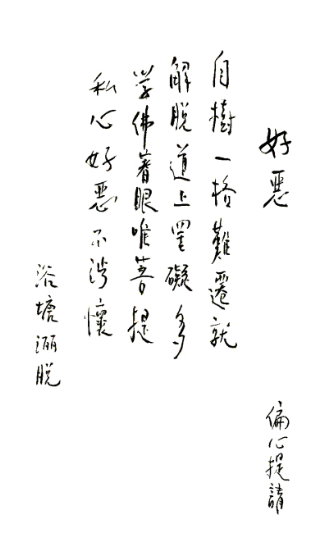 好惡
偏心提請
自樹一格難遷就
解脫道上罣礙多
學佛着眼唯菩提
私心好惡不涉懷
浴塘脫